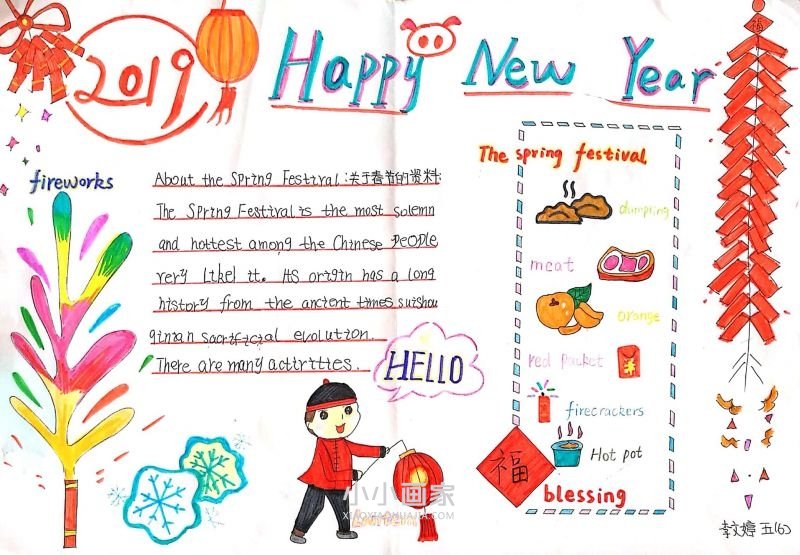 福
2019
Happy New Year
fireworks
About the Spring Festival:关于春节的资料:
The Spring Festival is the most solemn
and hottest among the Chinese People
very likel it. Its origin has a long
history from the ancient times suishou
qinian sacrificial evolution.
There are many activities.
HELLO
The spring festival
dumpling
meat
orange
red packet
firecrackers
Hot pot
福
blessing
小小画家
XIAOXIAOHUAJIA.COM
李文婷 五(6)